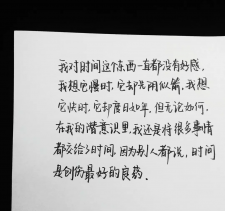 我对时间这个东西一直都没有好感，
我想它慢时，它却光阴似箭，我想
它快时，它却度日如年，但无论如何，
在我的潜意识里，我还是将很多事情
都交给了时间，因为别人都说，时间
是创伤最好的良药．